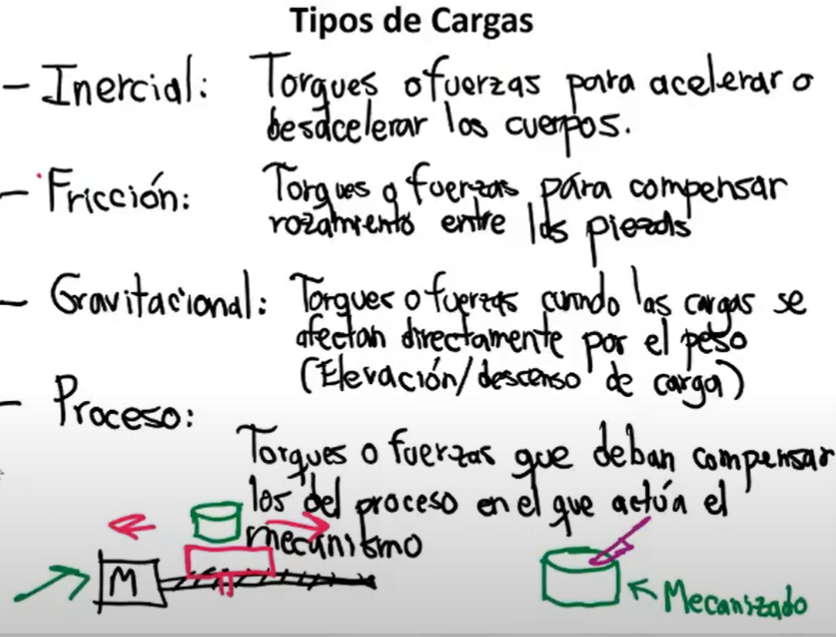 Tipos de Cargas
- Inercial: Torques o fuerzas para acelerar o
desacelerar los cuerpos.
- Fricción: Torques o fuerzas para compensar
rozamiento entre las piezas
- Gravitacional: Torques o fuerzas cuando las cargas se
afectan directamente por el peso
(Elevación/descenso de carga)
- Proceso:
Torques o fuerzas que deban compensar
los del proceso en el que actúa el
mecanismo
M
Mecanizado